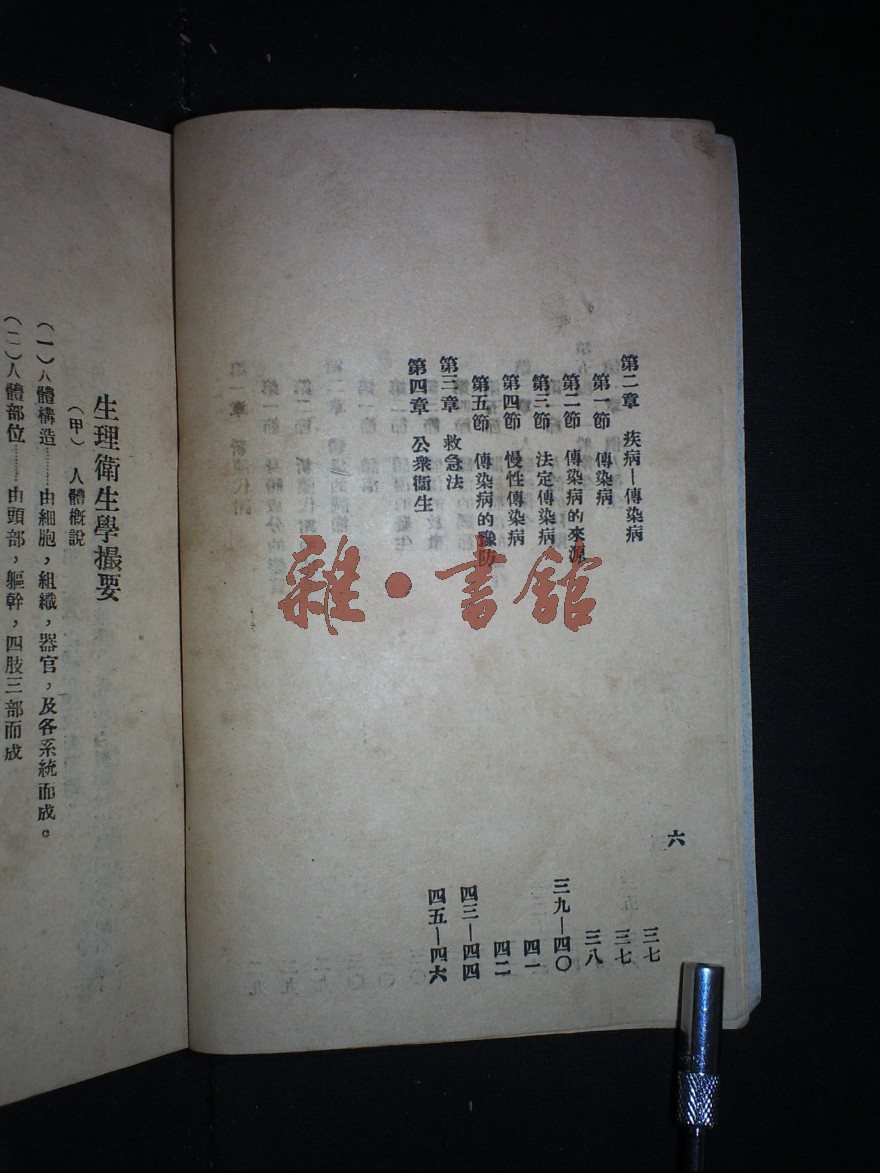 六
第二章　疾病—傳染病　三七
第一節　傳染病　三七
第二節　傳染病的來源　三八
第三節　法定傳染病　三九—四〇
第四節　慢性傳染病　四一
第五節　傳染病的豫防　四二
第三章　救急法　四三—四四
第四章　公衆衞生　四五—四六
生理衛生學撮要
（甲）人體槪說
（一）人體構造……由細胞，組織，器官，及各系統而成。
（二）人體部位……由頭部，軀幹，四肢三部而成
雜·書舘